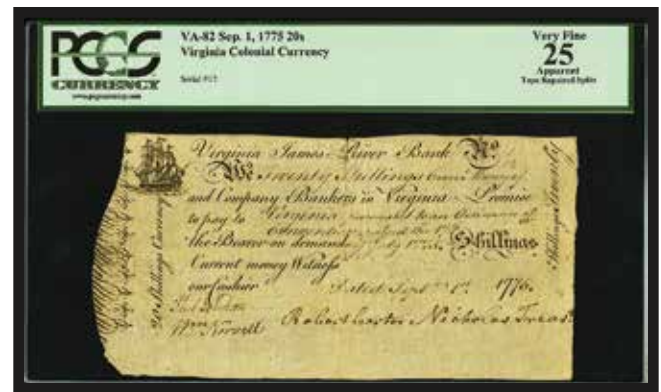 PCGS
CURRENCY
www.pcgscurrency.com
VA-82 Sep. 1, 1775 20s
Virginia Colonial Currency
Very Fine
25
Apparent
Tape Repaired Splits
Virginia James River Bank No
We Twenty Shillings
and Company Bankers in Virginia Promise
to pay to Virginia
the Bearer on demand July 1775 Shillings
Current money Witness
our Cashier Dated Sept 1st 1775.
Robert Carter Nicholas Treasr
20 Shillings Currency
Shillings Twenty